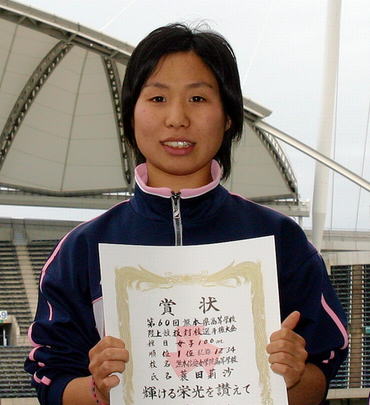 賞状
第60回熊本県高等学校
陸上競技対校選手権大会
種目 女子100m
順位 1位 記録 12"34
校名 熊本信愛女学院高等学校
氏名 田莉沙
輝ける栄光を讃えて